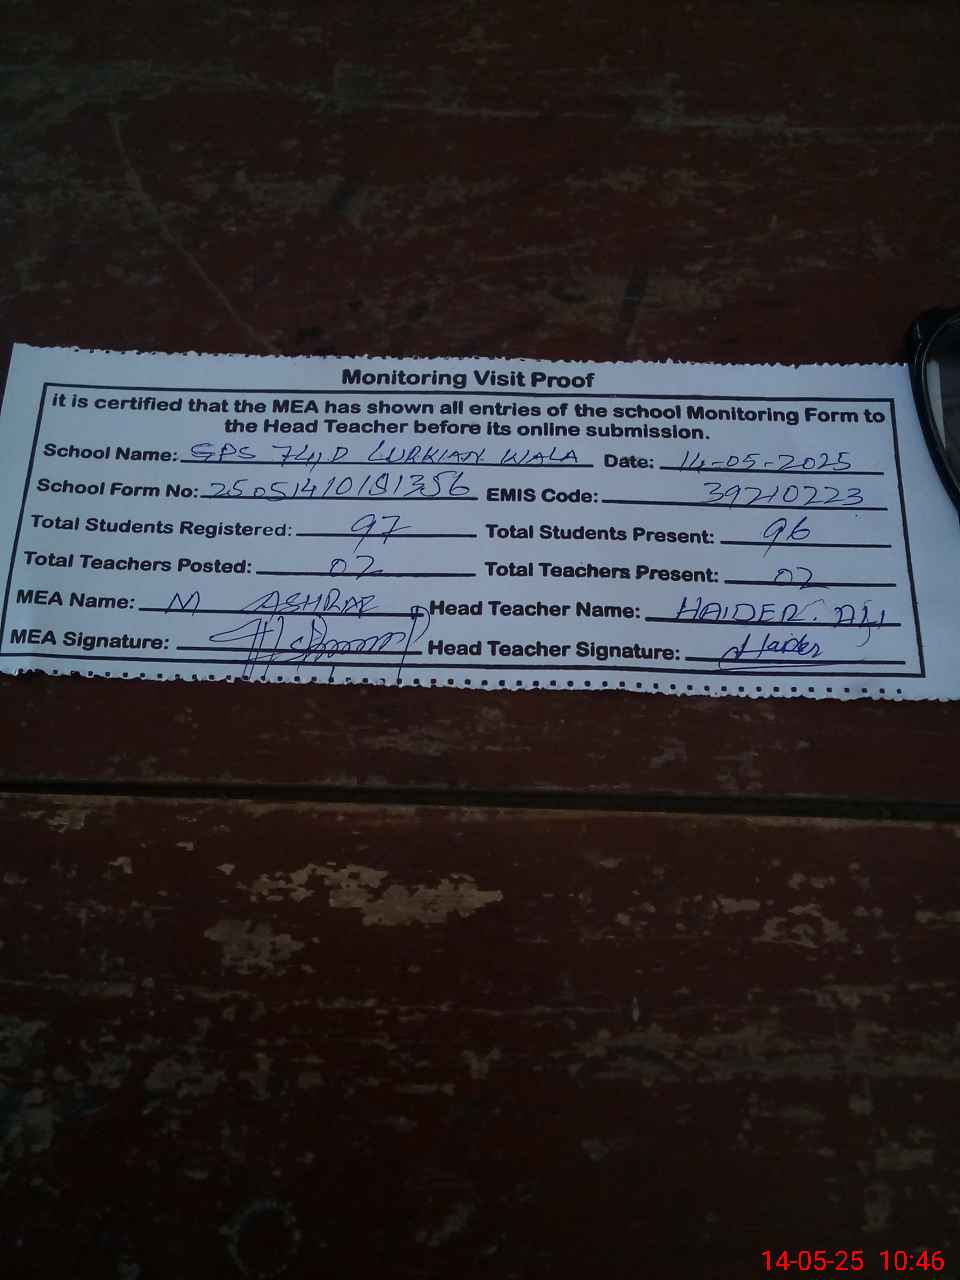 Monitoring Visit Proof
it is certified that the MEA has shown all entries of the school Monitoring Form to
the Head Teacher before its online submission.
School Name: GPS 74/D LURKIAN WALA Date: 14-05-2025
School Form No: 25051410181356 EMIS Code: 39210223
Total Students Registered: 97 Total Students Present: 96
Total Teachers Posted: 02 Total Teachers Present: 02
MEA Name: M ASHRAF Head Teacher Name: HAIDER. ALI
MEA Signature: Head Teacher Signature: Haider
14-05-25 10:46